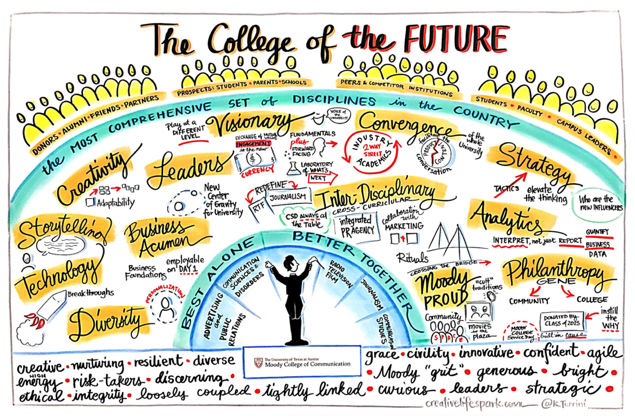 The College of the FUTURE
DONORS • ALUMNI • FRIENDS • PARTNERS
PROSPECTS • STUDENTS • PARENTS • SCHOOLS
PEERS & COMPETITOR INSTITUTIONS
STUDENTS • FACULTY • CAMPUS LEADERS •
the MOST COMPREHENSIVE SET of DISCIPLINES in the COUNTRY
Creativity
Adaptability
Leaders
New
Center of
Gravity for
University
play at a
DIFFERENT
LEVEL
Visionary
EXCHANGE of IDEAS
ENGAGEMENT
is the new
CURRENCY
FUNDAMENTALS
plus
FORWARD
FACING
LABORATORY
of WHAT'S
NEXT
Convergence
of the
whole
University
INDUSTRY
2 WAY
STREET
ACADEMICS
CONVERSATION
Strategy
TACTICS
elevate
the thinking
Who are the
new INFLUENCERS
Storytelling
Business
Acumen
Business
Foundations
employable
on DAY 1
REDEFINE
RTF
JOURNALISM
CSD ALWAYS at
the Table
Inter-Disciplinary
CROSS-CURRICULAR
integrated
PR AGENCY
collaboration
with
MARKETING
Rituals
Analytics
INTERPRET, not just REPORT
QUANTIFY
BUSINESS
DATA
Technology
Breakthroughs
PERSONALIZATION
Diversity
BEST ALONE
BETTER TOGETHER
ADVERTISING
and
PUBLIC
RELATIONS
COMMUNICATION
SCIENCES &
DISORDERS
RADIO
TELEVISION
FILM
JOURNALISM
COMMUNICATION
STUDIES
CROSSING the BRIDGE
Moody
PROUD
"cult"
traditions
Community
movies
on the
plaza
Philanthropy
GENE
COMMUNITY
COLLEGE
DONATED BY
CLASS of 2015
MOODY COLLEGE
Service Day
instill
the
WHY
The University of Texas at Austin
Moody College of Communication
creative • nurturing • resilient • diverse
HIGH
energy • risk-takers • discerning •
ethical • integrity • loosely coupled • tightly linked • curious • leaders • strategic •
grace • civility • innovative • confident • agile
• Moody "grit" • generous • bright
creativelifespark.com
@K.Torrini